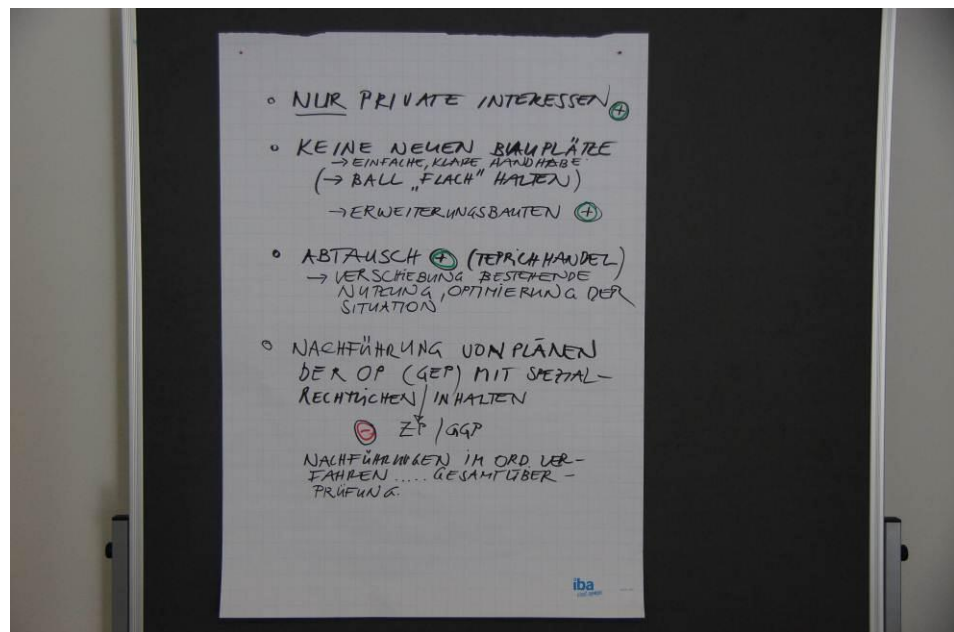 • NUR PRIVATE INTERESSEN +
• KEINE NEUEN BAUPLÄTZE
→ EINFACHE, KLARE HANDHABE
(→ BALL „FLACH" HALTEN)
→ ERWEITERUNGSBAUTEN +
• ABTAUSCH + (TEPRICHHANDEL)
→ VERSCHIEBUNG BESTEHENDE
NUTZUNG, OPTIMIERUNG DER
SITUATION
• NACHFÜHRUNG VON PLÄNEN
DER OP (GEP) MIT SPEZIAL-
RECHTLICHEN INHALTEN
- ZP / GGP
NACHFÜHRUNGEN IM ORD. VER-
FAHREN ..... GESAMTÜBER-
PRÜFUNG.
iba